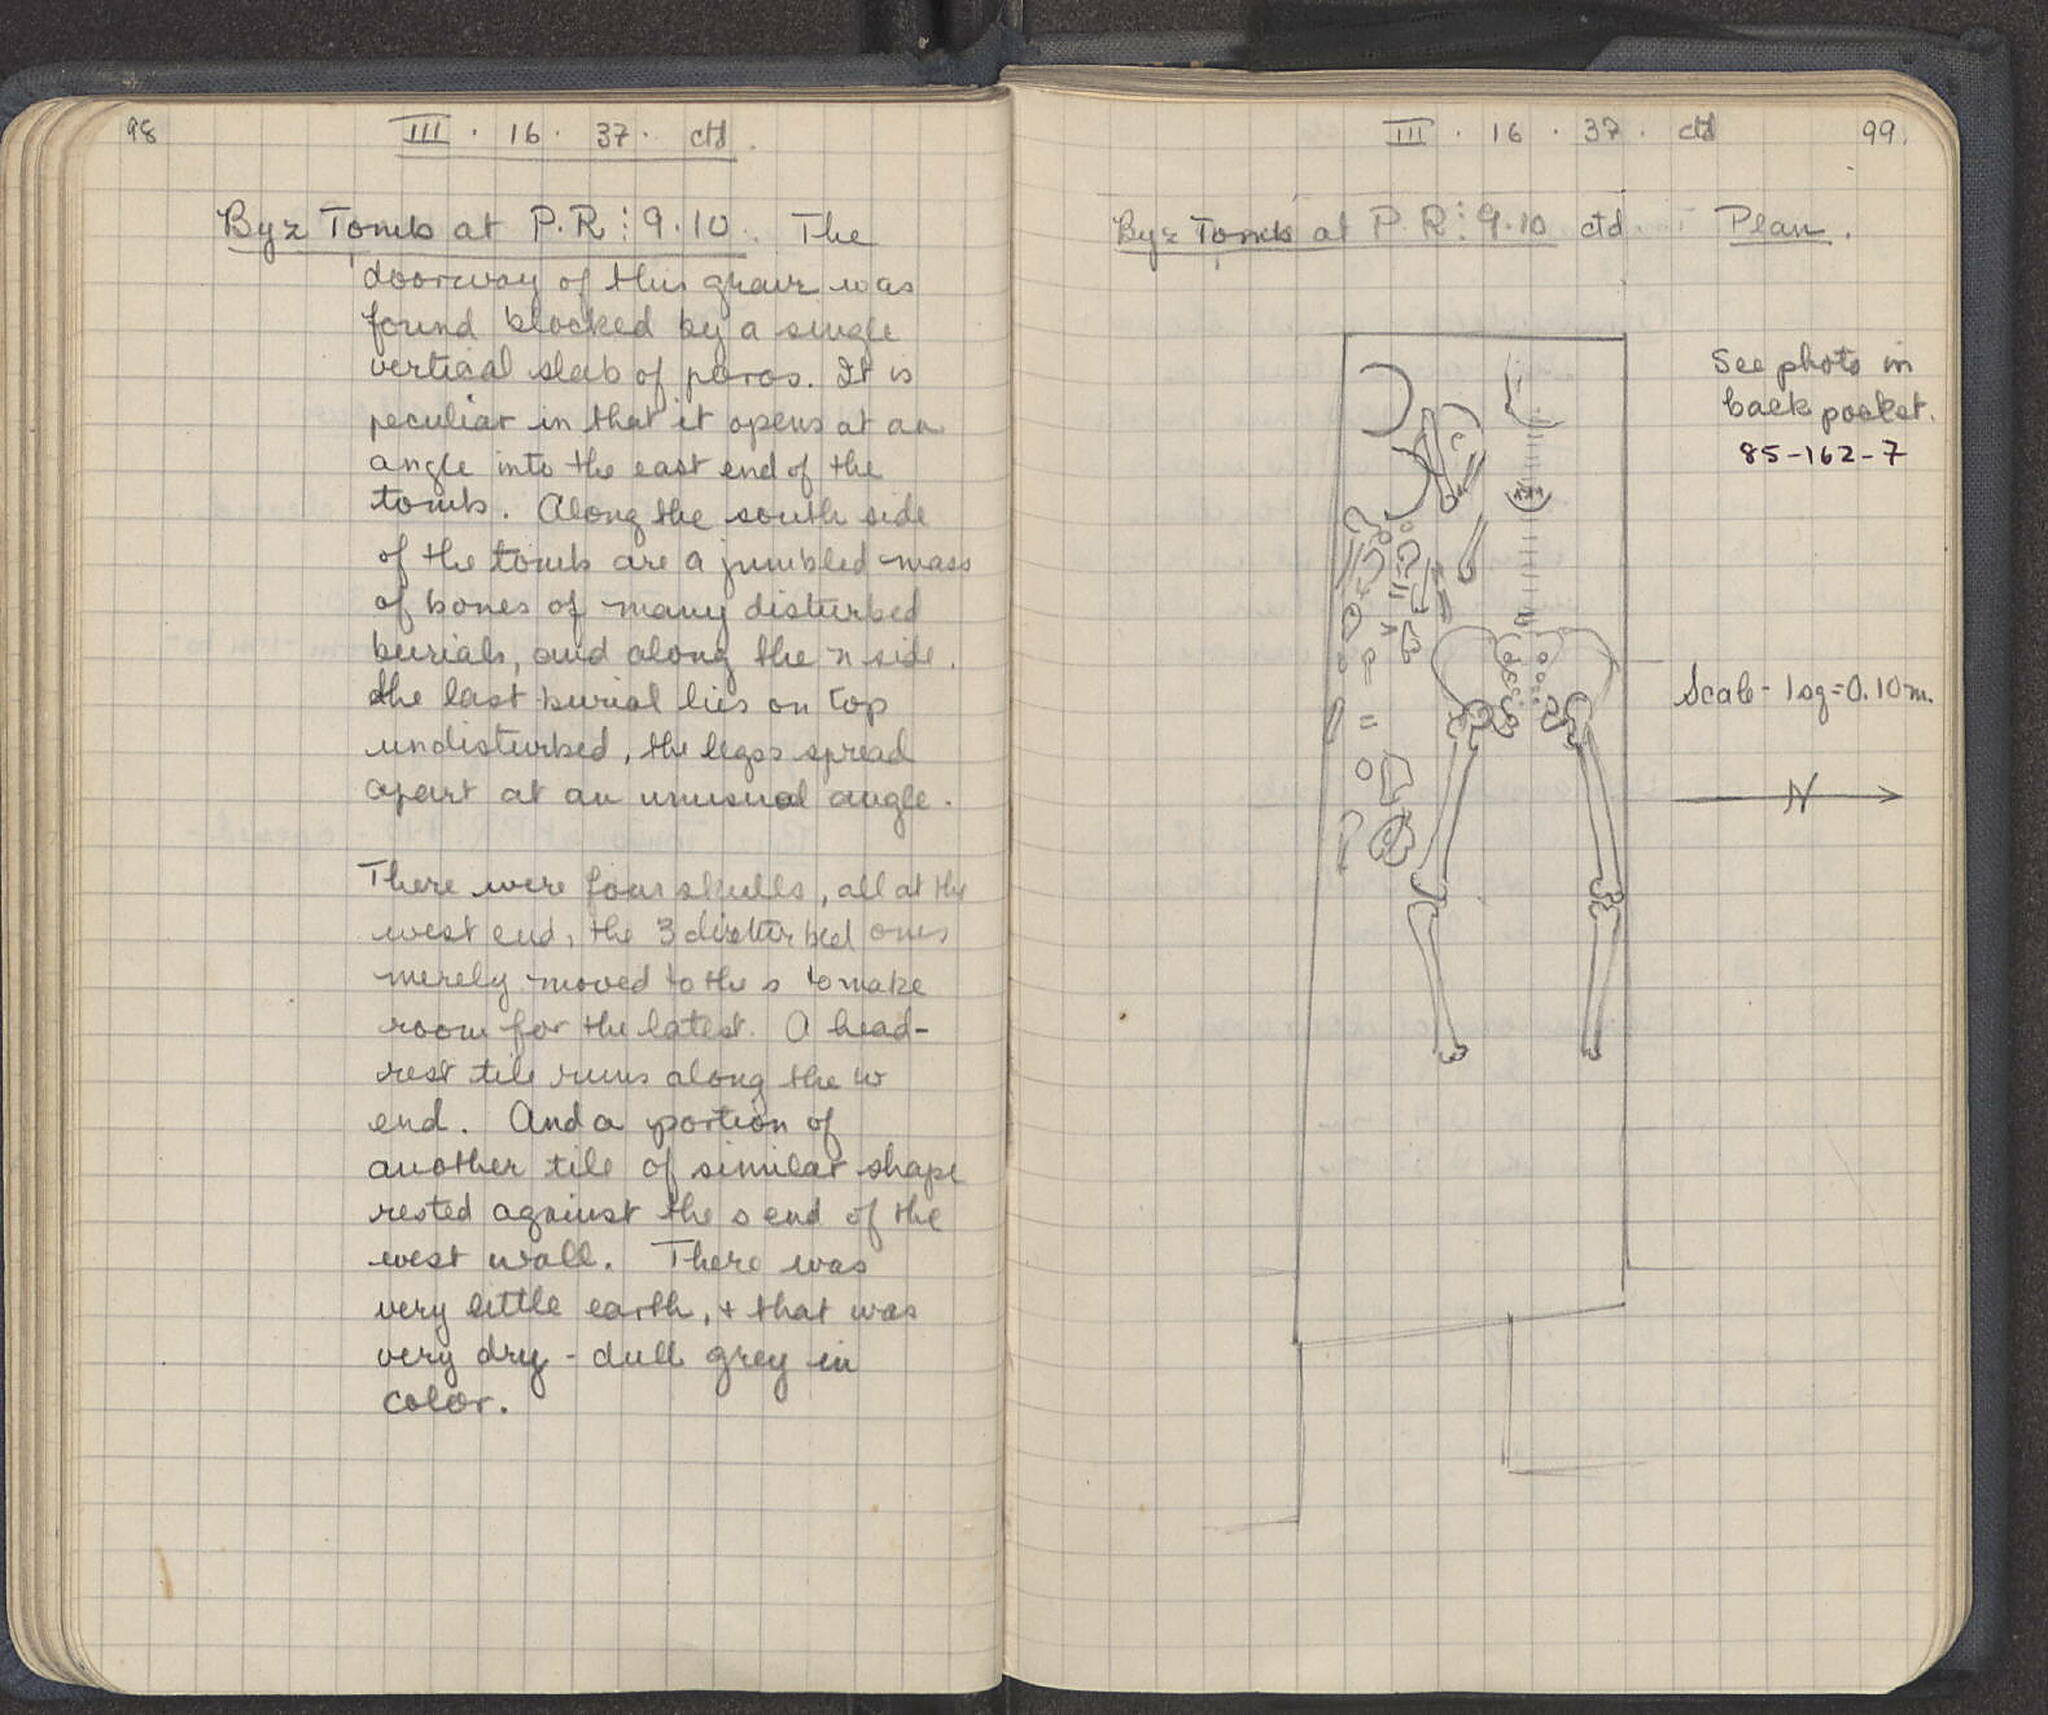 98
III . 16 . 37 . ctd.
Byz Tomb at P.R : 9.10. The
doorway of this grave was
found blocked by a single
vertical slab of poros. It is
peculiar in that it opens at an
angle into the east end of the
tomb. Along the south side
of the tomb are a jumbled mass
of bones of many disturbed
burials, and along the n side.
the last burial lies on top
undisturbed, the legs spread
apart at an unusual angle.
There were four skulls, all at the
west end, the 3 disturbed ones
merely moved to the s to make
room for the latest. A head-
rest tile runs along the w
end. And a portion of
another tile of similar shape
rested against the s end of the
west wall. There was
very little earth, + that was
very dry - dull grey in
color.
III . 16 . 37 . ctd
99.
Byz Tomb at P.R : 9.10 ctd. Plan.
See photo in
back pocket.
85-162-7
Scale - 1 sq = 0.10 m.
N